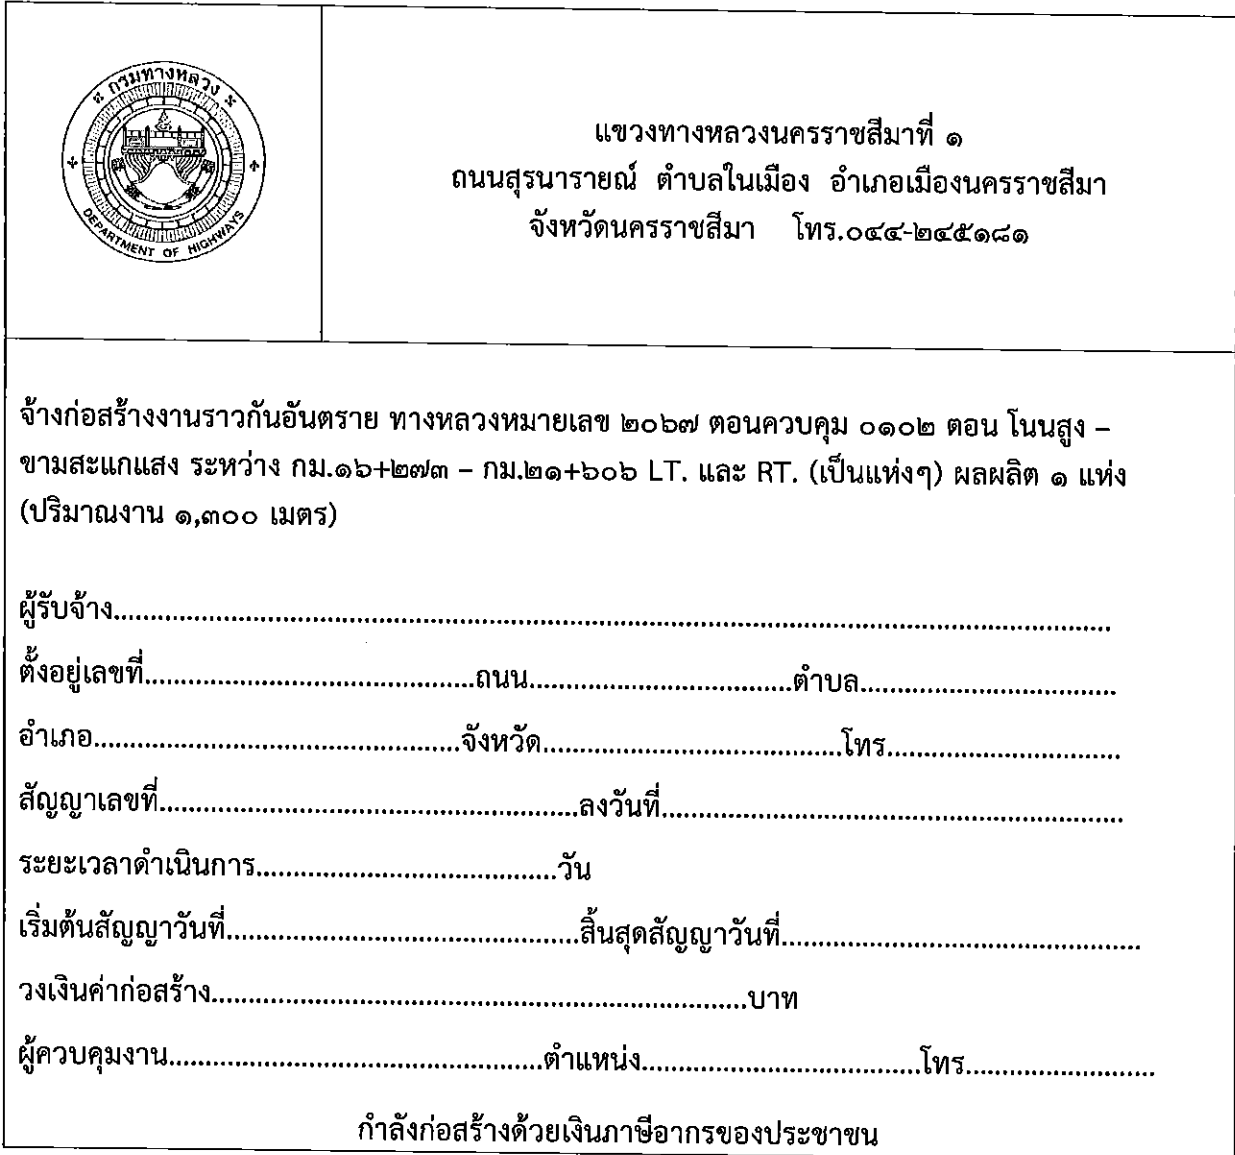 กรมทางหลวง
DEPARTMENT OF HIGHWAYS
แขวงทางหลวงนครราชสีมาที่ ๑
ถนนสุรนารายณ์ ตำบลในเมือง อำเภอเมืองนครราชสีมา
จังหวัดนครราชสีมา โทร.๐๔๔-๒๔๕๑๘๑
จ้างก่อสร้างงานราวกันอันตราย ทางหลวงหมายเลข ๒๐๖๗ ตอนควบคุม ๐๑๐๒ ตอน โนนสูง –
ขามสะแกแสง ระหว่าง กม.๑๖+๒๗๓ – กม.๒๑+๖๐๖ LT. และ RT. (เป็นแห่งๆ) ผลผลิต ๑ แห่ง
(ปริมาณงาน ๑,๓๐๐ เมตร)
ผู้รับจ้าง....................................................................................................
ตั้งอยู่เลขที่............................................ถนน...................................ตำบล..................................
อำเภอ.................................................จังหวัด........................................โทร...............................
สัญญาเลขที่........................................................ลงวันที่..............................................................
ระยะเวลาดำเนินการ........................................วัน
เริ่มต้นสัญญาวันที่...............................................สิ้นสุดสัญญาวันที่................................................
วงเงินค่าก่อสร้าง.......................................................................บาท
ผู้ควบคุมงาน..................................................ตำแหน่ง.....................................โทร.........................
กำลังก่อสร้างด้วยเงินภาษีอากรของประชาชน